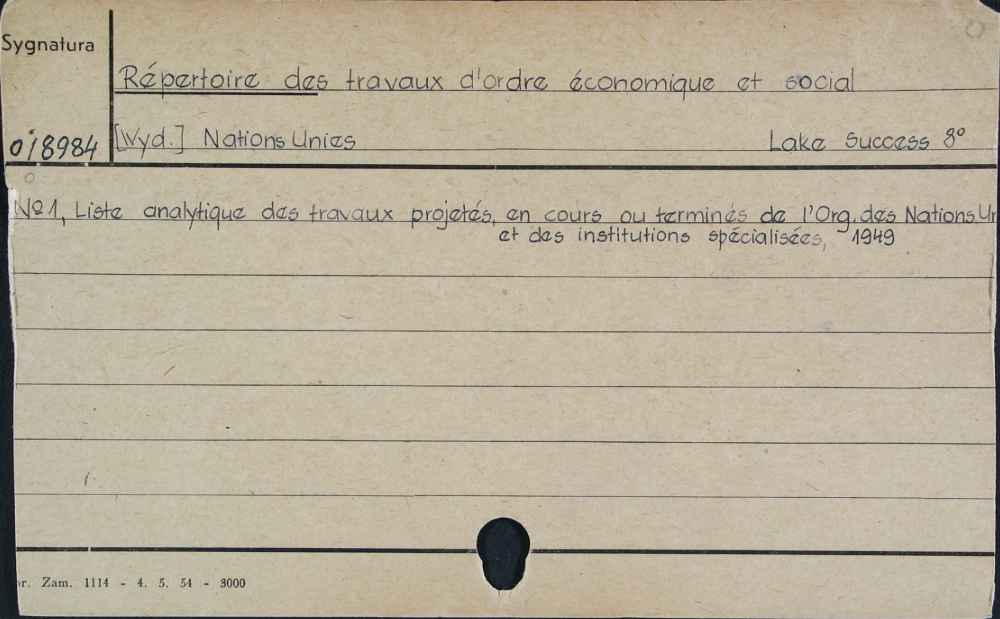 Sygnatura
Répertoire des travaux d'ordre économique et social
018984 [Wyd.] Nations Unies Lake Success 8º
Nº 1, Liste analytique des travaux projetés, en cours ou terminés de l'Org. des Nations Un
et des institutions spécialisées, 1949
r. Zam. 1114 - 4. 5. 54 - 3000